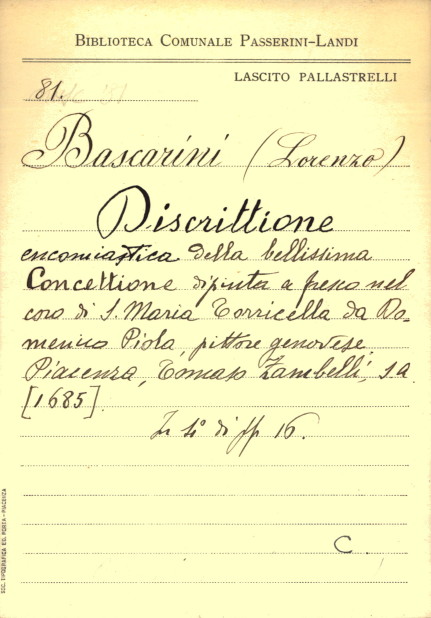 BIBLIOTECA COMUNALE PASSERINI-LANDI
LASCITO PALLASTRELLI
81.
Bascarini (Lorenzo)
Discrittione
encomiastica della bellissima
Concettione dipinta a fresco nel
coro di S. Maria Torricella da Do-
menico Piola, pittore genovese.
Piacenza, Tomaso Zambelli, s.a
[1685].
In 4° di pp 16.
C.
SOC. TIPOGRAFICA ED. PORTA - PIACENZA